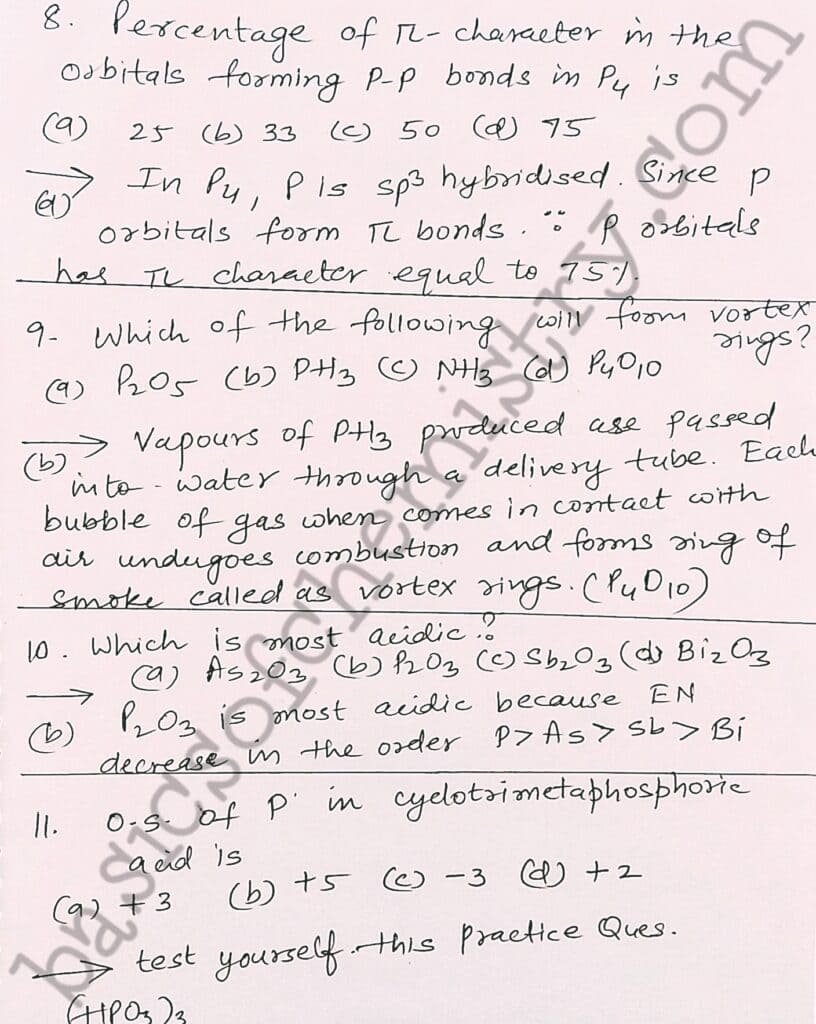 8. Percentage of π- character in the
orbitals forming P-P bonds in P4 is
(a) 25 (b) 33 (c) 50 (d) 75
→ In P4, P is sp3 hybridised. Since p
(d) orbitals form π bonds. ∵ p orbitals
has π character equal to 75%.
9- Which of the following will form vortex
rings?
(a) P2O5 (b) PH3 (c) NH3 (d) P4O10
→ Vapours of PH3 produced are passed
(b) into - water through a delivery tube. Each
bubble of gas when comes in contact with
air undergoes combustion and forms ring of
smoke called as vortex rings. (P4O10)
10. Which is most acidic?
(a) As2O3 (b) P2O3 (c) Sb2O3 (d) Bi2O3
→ P2O3 is most acidic because EN
(b) decrease in the order P > As > Sb > Bi
11. O.S. of P in cyclotrimetaphosphoric
acid is
(a) +3 (b) +5 (c) -3 (d) +2
→ test yourself this Practice Ques.
(HPO3)3
basicsofchemistry.com